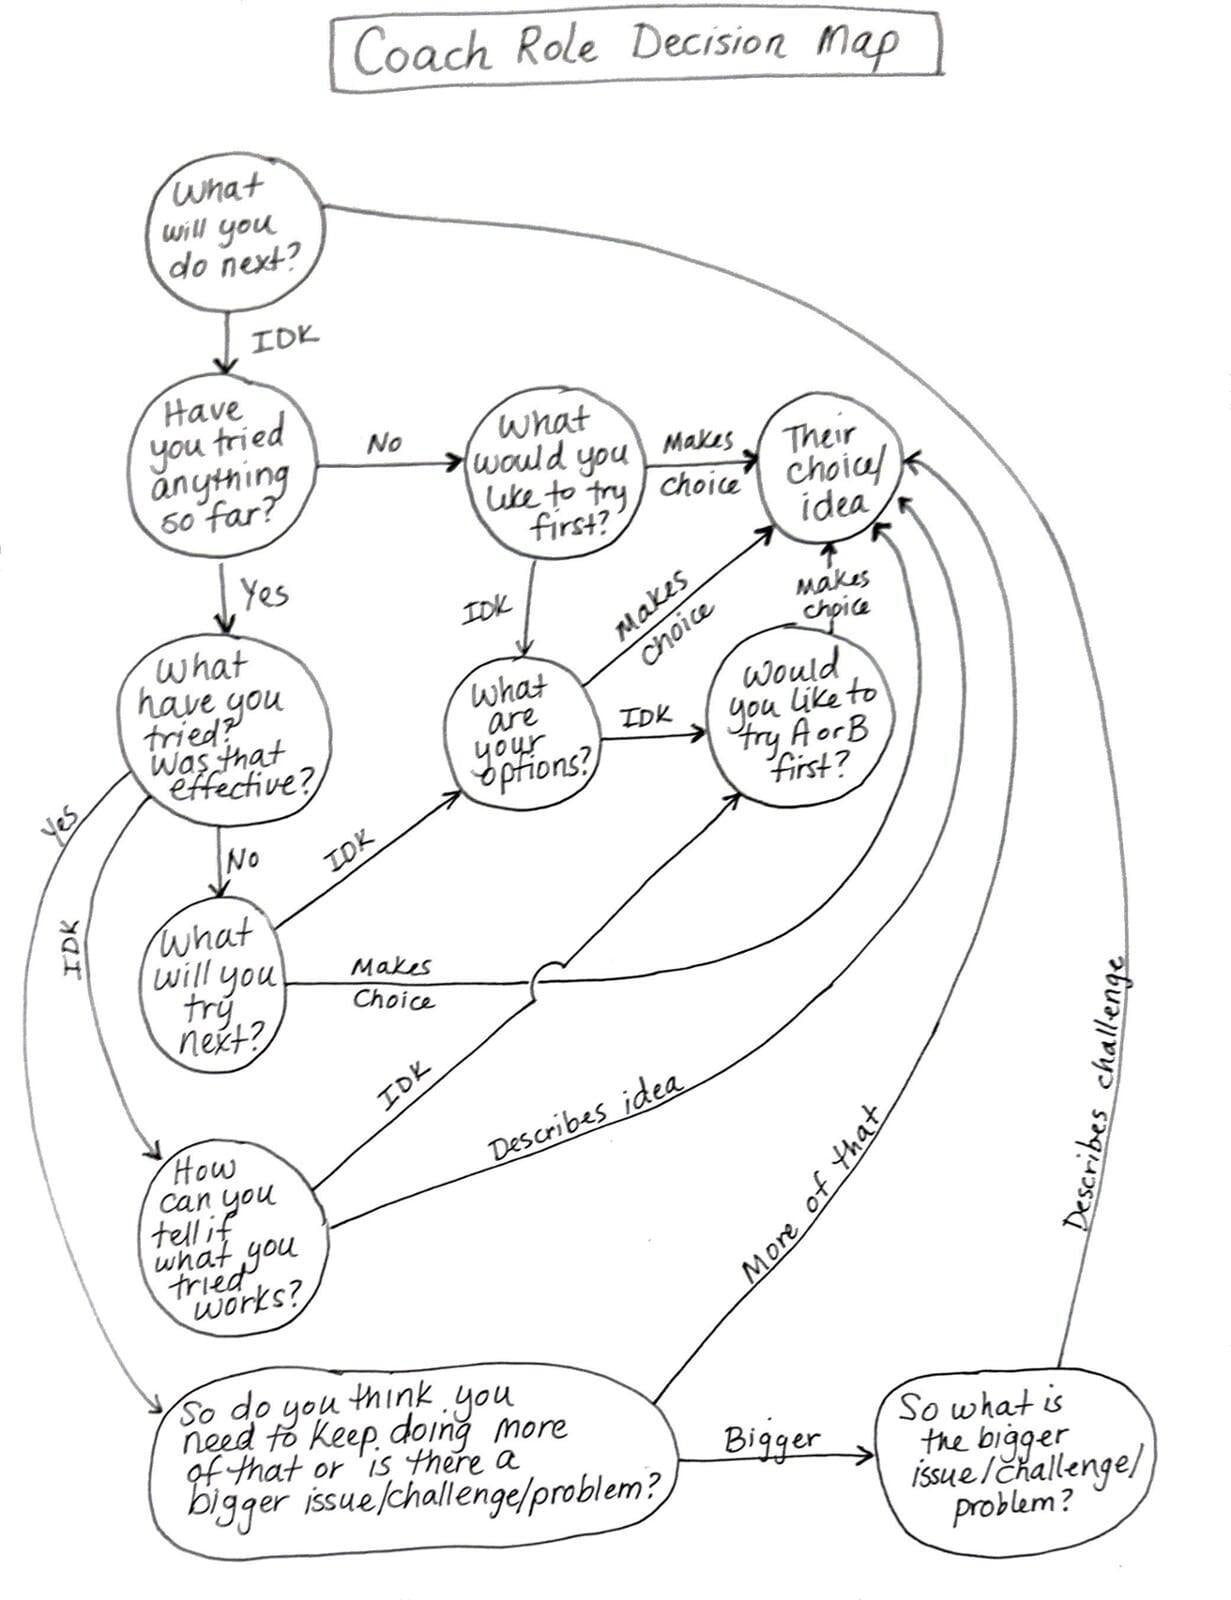 Coach Role Decision Map
What
will you
do next?
IDK
Have
you tried
anything
so far?
No
What
would you
like to try
first?
Makes
choice
Their
choice/
idea
Yes
IDK
Makes
choice
Makes
choice
What
have you
tried?
Was that
effective?
What
are
your
options?
IDK
Would
you like to
try A or B
first?
Yes
IDK
No
IDK
What
will you
try
next?
Makes
Choice
IDK
Describes idea
How
can you
tell if
what you
tried
works?
More of that
Describes challenge
So do you think you
need to keep doing more
of that or is there a
bigger issue/challenge/problem?
Bigger
So what is
the bigger
issue/challenge/
problem?